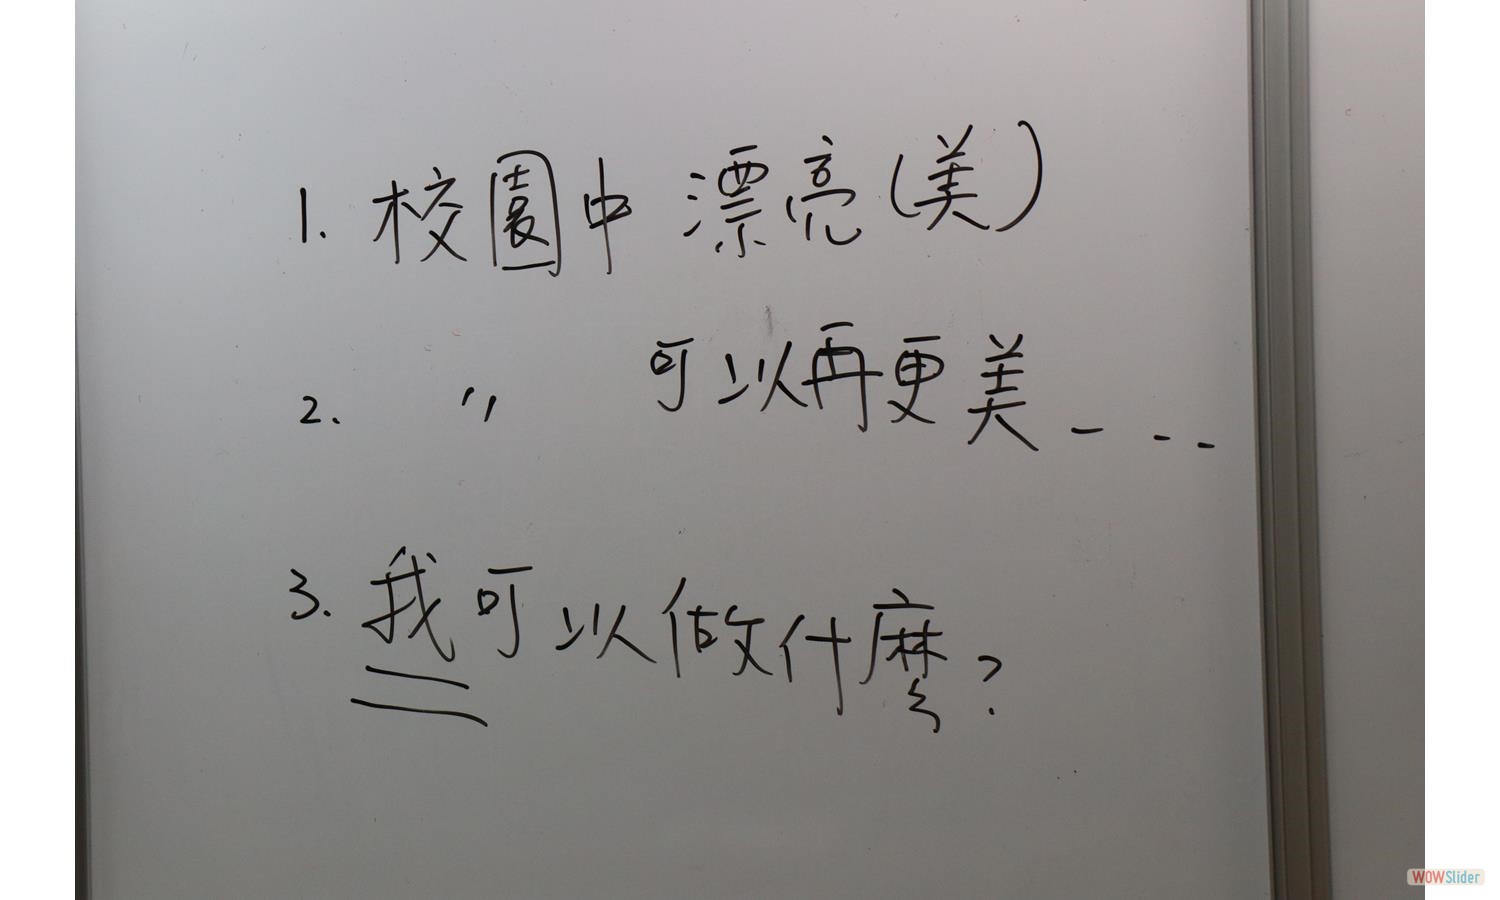 1. 校園中 漂亮(美)
2. 〃 可以再更美...
3. 我可以做什麼?
WOWSlider